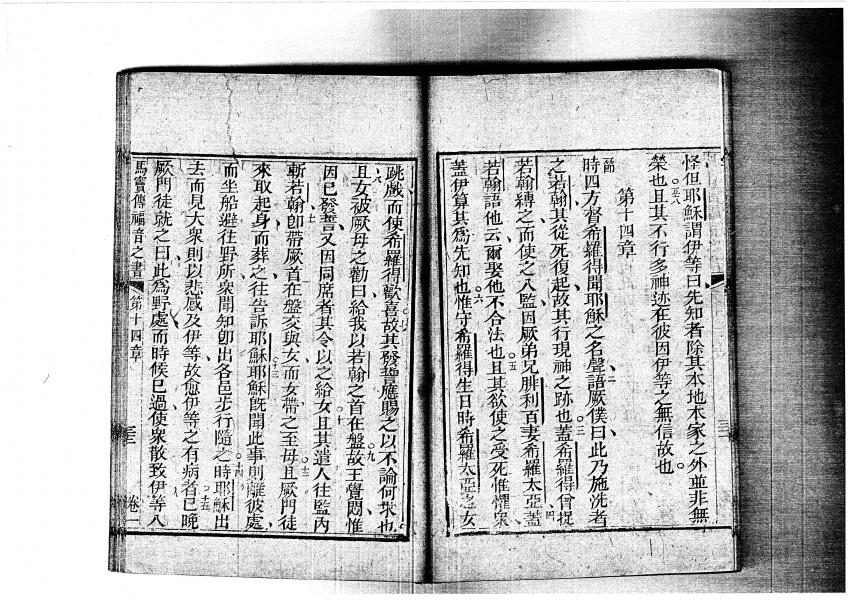 怪但耶穌謂伊等曰先知者除其本地本家之外並非無
榮也五八且其不行多神迹在彼因伊等之無信故也
第十四章
一節時四方督希羅得聞耶穌之名聲二語厥僕曰此乃施洗者
之若翰其從死復起故其行現神之跡也三蓋希羅得曾捉
若翰縛之而使之入監因厥弟兄腓利百妻希羅太亞四蓋
若翰語他云爾娶他不合法也五且其欲使之受死惟懼衆
蓋伊算其為先知也六惟守希羅得生日時希羅太亞之女
跳戲而使希羅得歡喜七故其發誓應賜之以不論何求也
八且女被厥母之勸曰給我以若翰之首在盤九故王覺悶惟
因已發誓又因同席者其令以之給女十且其遣人往監內
斬若翰十一卽帶厥首在盤交與女而女帶之至母十二且厥門徒
來取起身而葬之往告訴耶穌十三耶穌旣聞此事則離彼處
而坐船避往野所衆聞知卽出各邑步行隨之十四時耶穌出
去而見大衆則以悲感及伊等故愈伊等之有病者十五已晚
厥門徒就之曰此為野處而時候已過使衆散致伊等入
馬竇傳福音之書 第十四章 三三 卷一